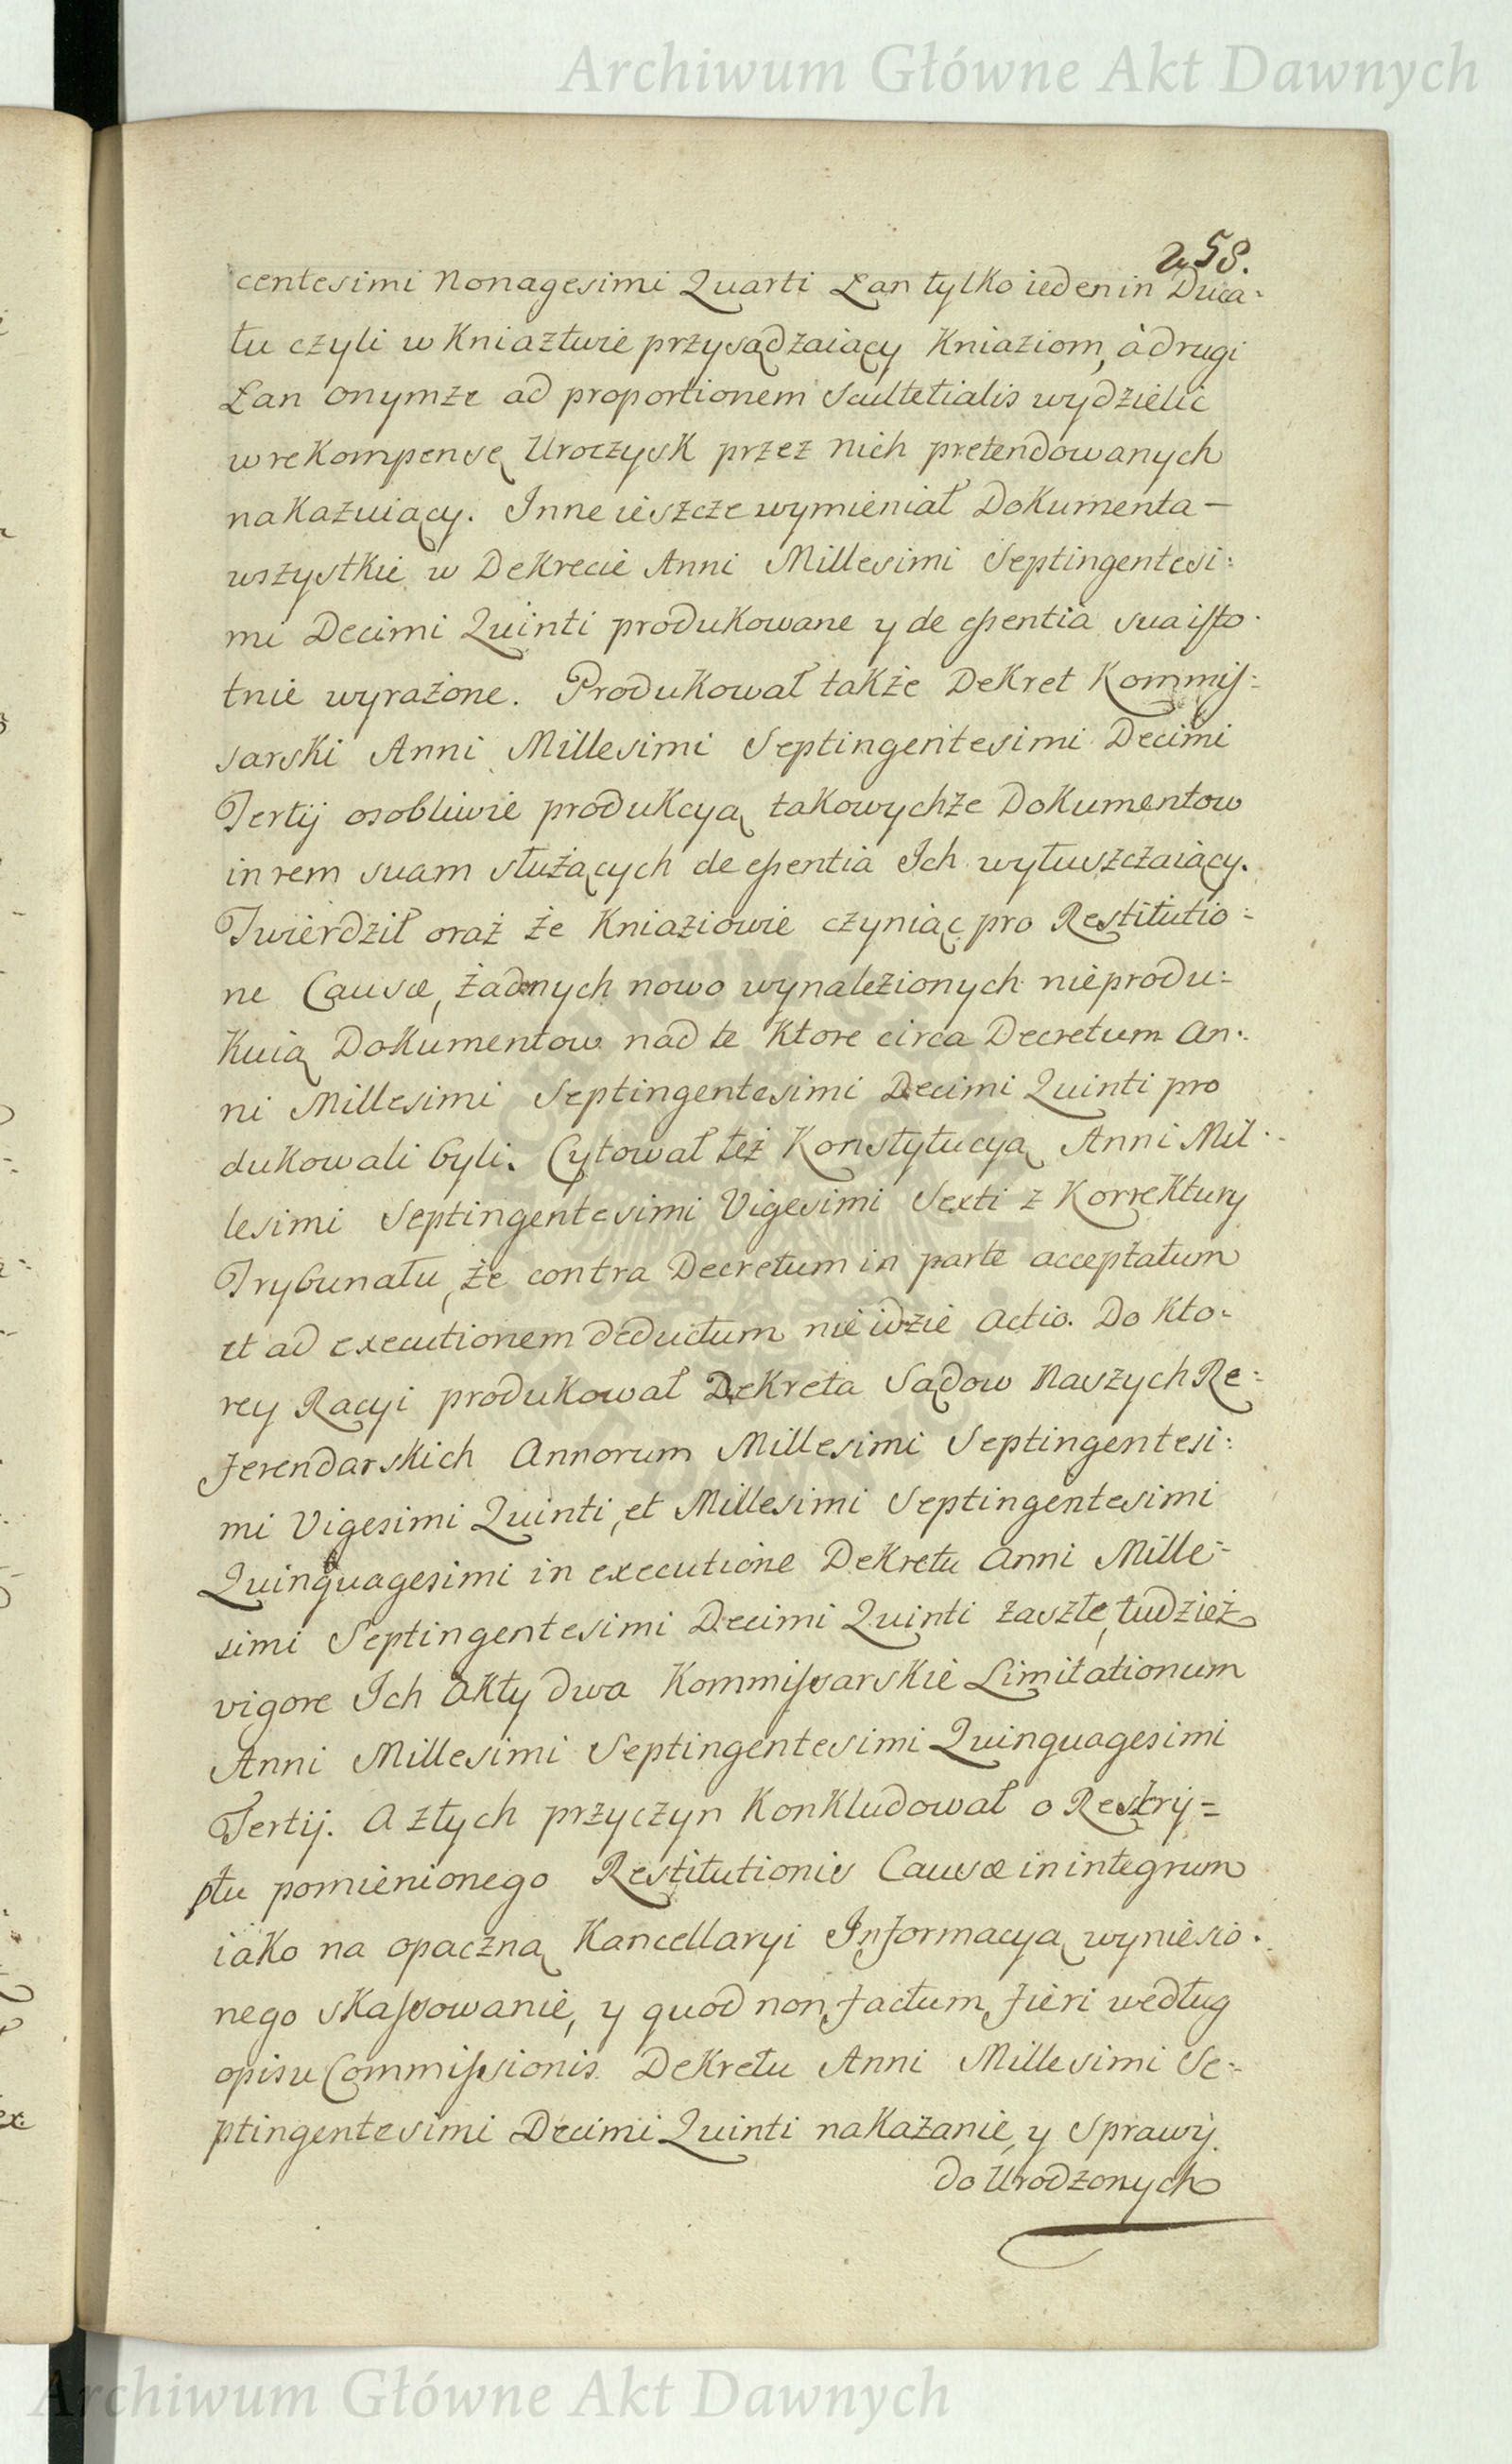 Archiwum Główne Akt Dawnych
258.
centesimi Nonagesimi Quarti Łan tylko ieden in Duca-
tu czyli w Kniaztwie przysądzaiący Kniaziom, à drugi
Łan onymze ad proportionem Scultetialis wydzielić
w rekompensę Uroczysk przez nich pretendowanych
nakazuiący. Inne ieszcze wymieniał Dokumenta –
wszystkie w Dekrecie Anni Millesimi Septingentesi:
mi Decimi Quinti produkowane y de essentia sua isto-
tnie wyrażone. Produkował także Dekret Kommis:
sarski Anni Millesimi Septingentesimi Decimi
Tertij osobliwie produkcyą takowychże Dokumentow
in rem suam służących de essentia Ich wyłuszczaiący.
Twierdził oraż że Kniaziowie czyniąc pro Restitutio:
ne Causæ, żadnych nowo wynalezionych nie produ:
kuią Dokumentow nad te ktore circa Decretum An:
ni Millesimi Septingentesimi Decimi Quinti pro
dukowali byli. Cytował też Konstytucyą Anni Mil-
lesimi Septingentesimi Vigesimi Sexti z Korrektury
Trybunału, że contra Decretum in parte acceptatum
et ad executionem deductum nie idzie Actio. Do kto-
rey Racyi produkował Dekreta Sądow Naszych Re:
ferendarskich Annorum Millesimi Septingentesi:
mi Vigesimi Quinti, et Millesimi Septingentesimi
Quinquagesimi in executione Dekretu Anni Mille-
simi Septingentesimi Decimi Quinti zaszłe, tudzież
vigore Ich Akty dwa Kommissarskie Limitationum
Anni Millesimi Septingentesimi Quinquagesimi
Tertij. A z tych przyczyn konkludował o Reskry=
ptu pomienionego Restitutionis Causæ in integrum
iako na opaczną Kancellaryi Informacyą wyniesio-
nego skassowanie, y quod non factum, fieri według
opisu Commissionis Dekretu Anni Millesimi Se-
ptingentesimi Decimi Quinti nakazanie, y Sprawy
do Urodzonych
Archiwum Główne Akt Dawnych